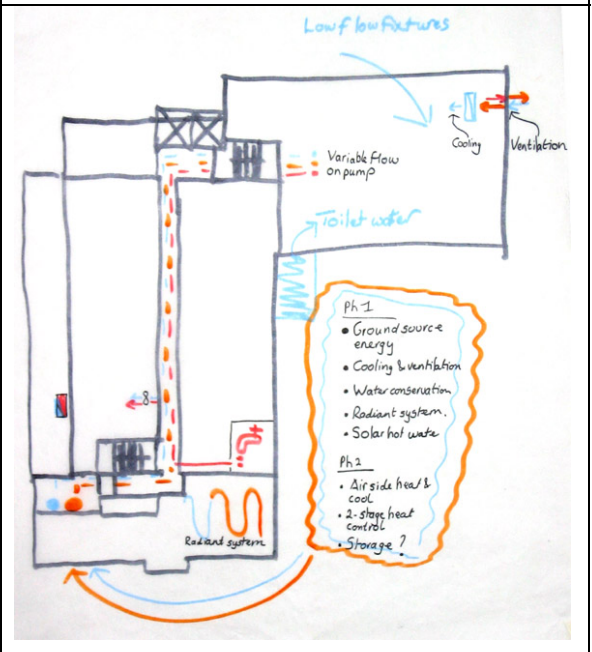 Low flow fixtures
Cooling
Ventilation
Variable flow
on pump
Toilet water
Ph 1
• Ground source
energy
• Cooling & ventilation
• Water conservation
• Radiant system.
• Solar hot wate
Ph 2
• Air side heat &
cool
• 2-stage heat
control
• Storage ?
8
Radiant system